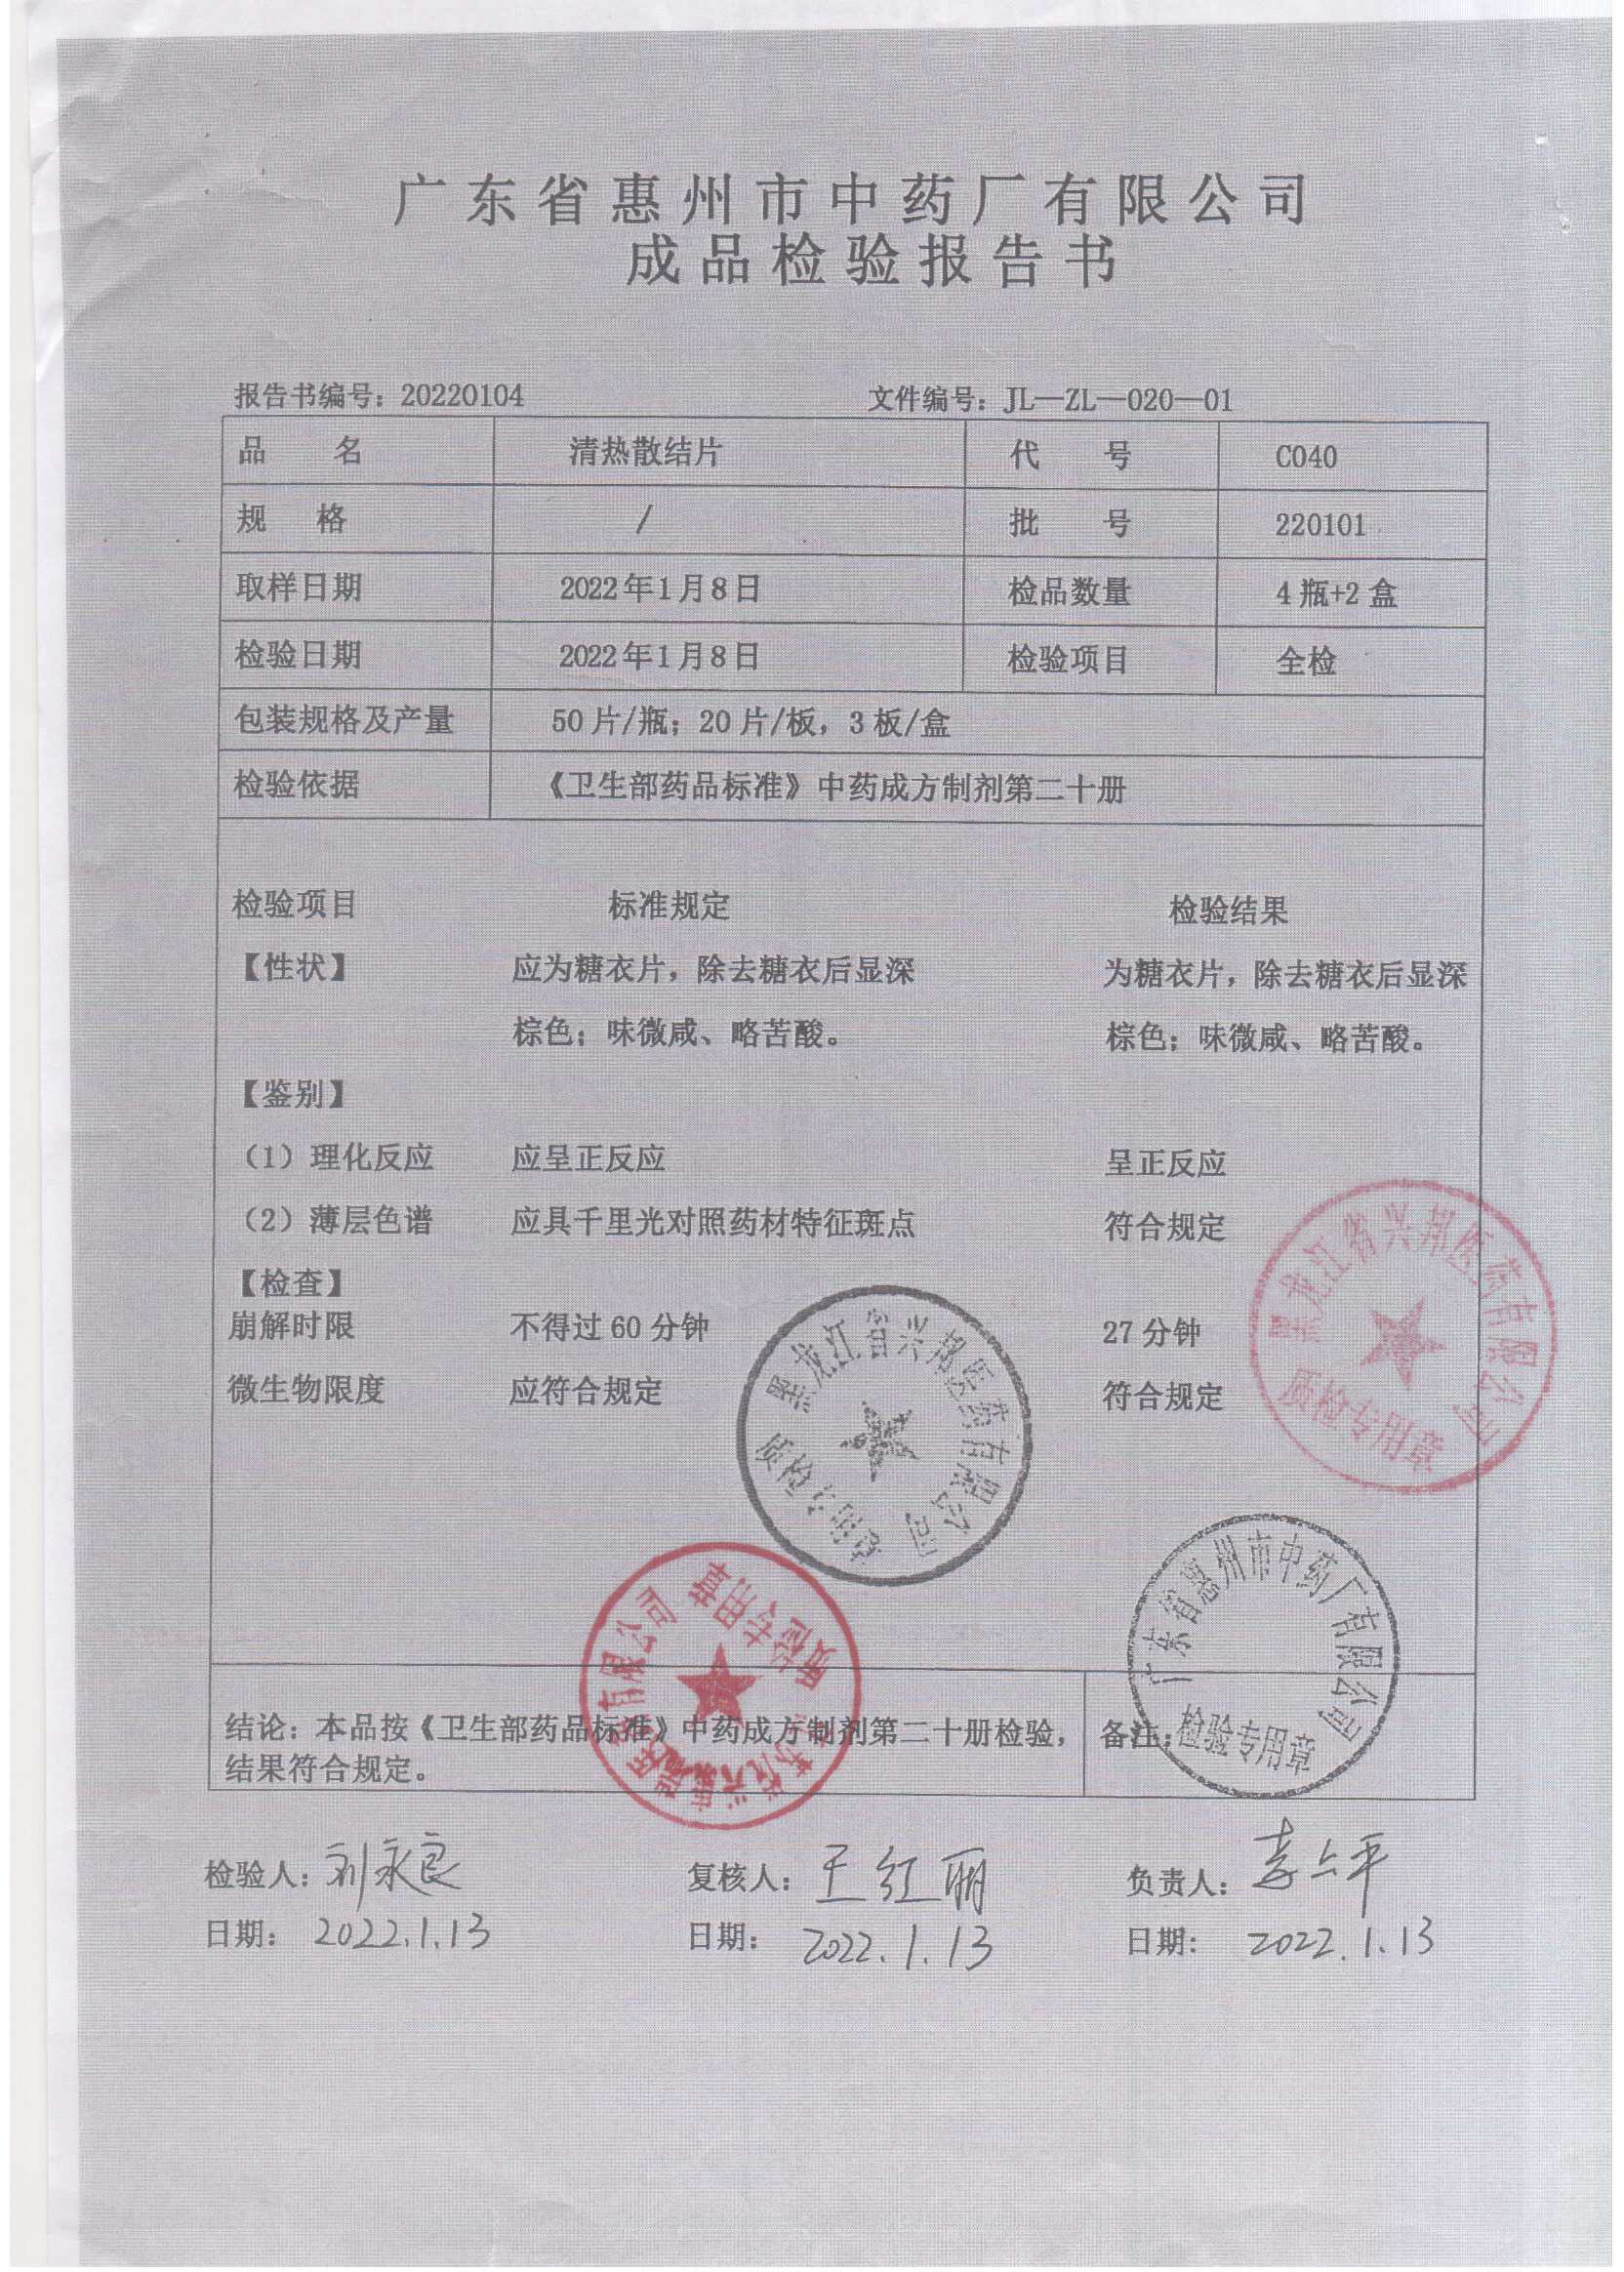 广东省惠州市中药厂有限公司
成品检验报告书
报告书编号：20220104 文件编号：JL—ZL—020—01
品 名 清热散结片 代 号 C040
规 格 / 批 号 220101
取样日期 2022年1月8日 检品数量 4瓶+2盒
检验日期 2022年1月8日 检验项目 全检
包装规格及产量 50片/瓶；20片/板，3板/盒
检验依据 《卫生部药品标准》中药成方制剂第二十册
检验项目 标准规定 检验结果
【性状】 应为糖衣片，除去糖衣后显深 为糖衣片，除去糖衣后显深
棕色；味微咸、略苦酸。 棕色；味微咸、略苦酸。
【鉴别】
（1）理化反应 应呈正反应 呈正反应
（2）薄层色谱 应具千里光对照药材特征斑点 符合规定
【检查】
崩解时限 不得过60分钟 27分钟
微生物限度 应符合规定 符合规定
黑龙江省兴邦医药有限公司
质检专用章
黑龙江省兴邦医药有限公司
质检专用章
广东省惠州市中药厂有限公司
检验专用章
有限公司
质检专用章
结论：本品按《卫生部药品标准》中药成方制剂第二十册检验， 备注：
结果符合规定。
检验人：刘永良 复核人：王红丽 负责人：
日期：2022.1.13 日期：2022.1.13 日期：2022.1.13